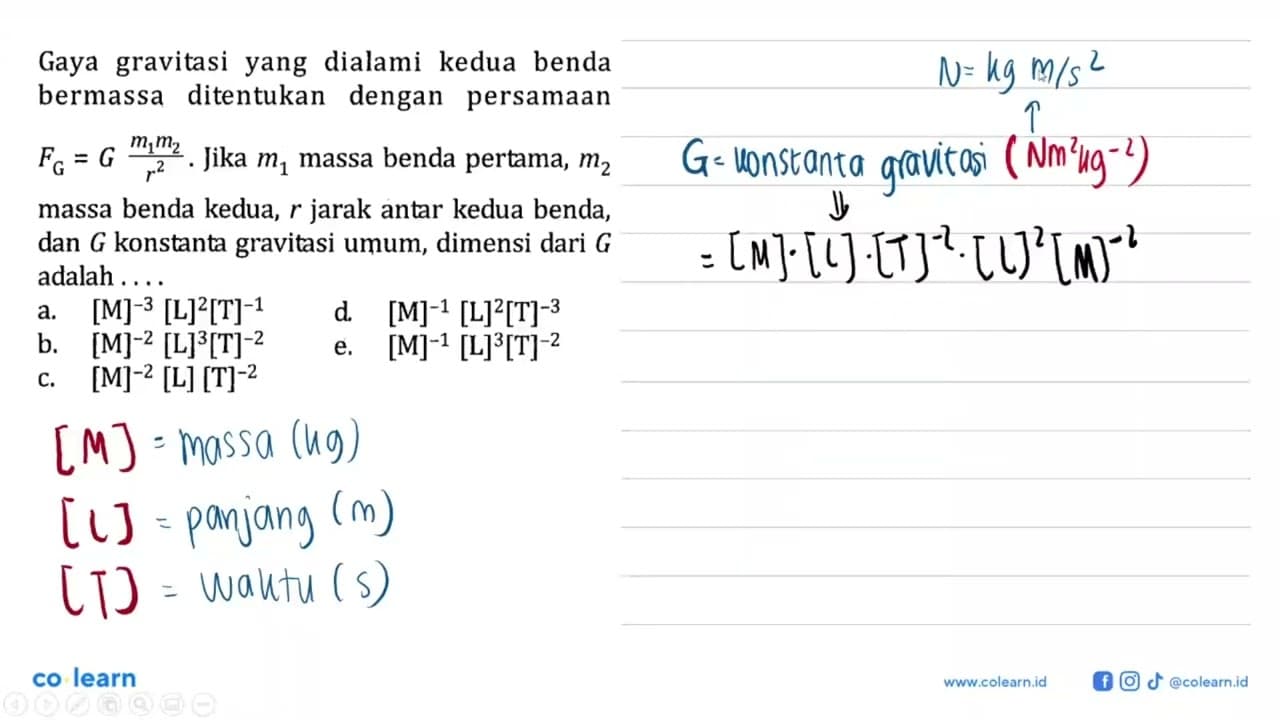 Gaya gravitasi yang dialami kedua benda
bermassa ditentukan dengan persamaan
F_G = G \frac{m_1 m_2}{r^2}. Jika m_1 massa benda pertama, m_2
massa benda kedua, r jarak antar kedua benda,
dan G konstanta gravitasi umum, dimensi dari G
adalah . . . .
a. [M]⁻³ [L]²[T]⁻¹
b. [M]⁻² [L]³[T]⁻²
c. [M]⁻² [L] [T]⁻²
d. [M]⁻¹ [L]²[T]⁻³
e. [M]⁻¹ [L]³[T]⁻²
[M] = massa (kg)
[L] = panjang (m)
[T] = waktu (s)
N = kg m/s²
↑
G = konstanta gravitasi (Nm²kg⁻²)
⇓
= [M]·[L]·[T]⁻²·[L]²[M]⁻²
co learn
www.colearn.id
@colearn.id